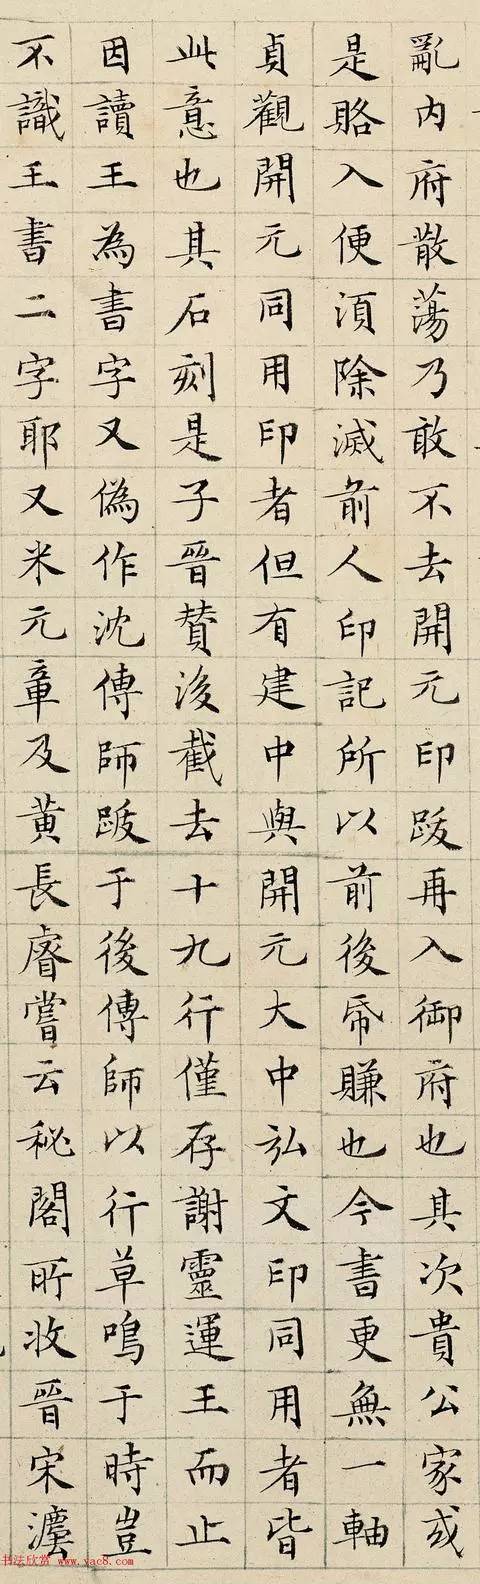 亂内府散蕩乃敢不去開元印跋再入御府也其次貴公家或
是賂入便湏除滅前人印記所以前後帋賺也今書更無一軸
貞觀開元同用印者但有建中與開元大中弘文印同用者皆
此意也其石刻是子晉賛後截去十九行僅存謝靈運王而止
因讀王為書字又偽作沈傳師跋于後傳師以行草鳴于時豈
不識王書二字耶又米元章及黃長睿嘗云秘閣所收晉宋灋
书法欣赏 www.yac8.com